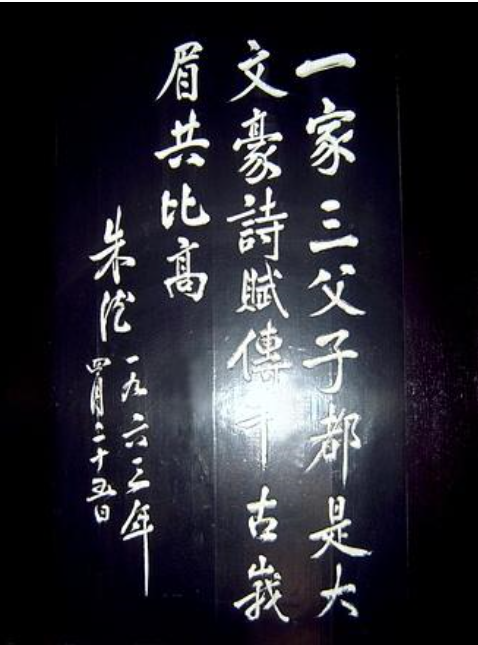 一家三父子都是大
文豪詩賦傳千古峩
眉共比高
朱德
一九六三年
四月二十五日